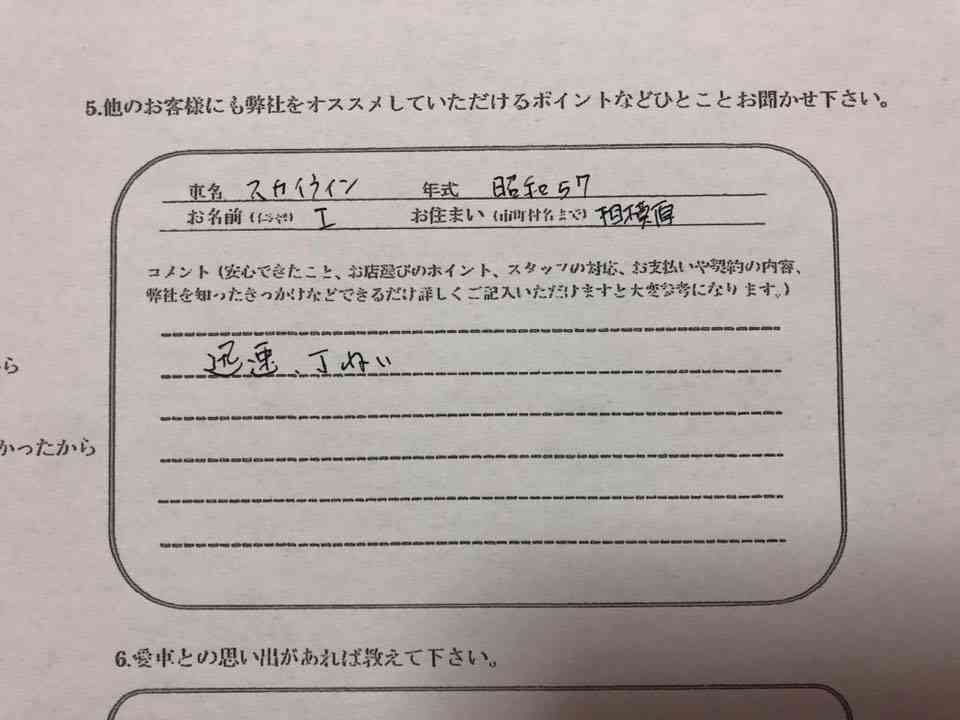 5.他のお客様にも弊社をオススメしていただけるポイントなどひとことお聞かせ下さい。
車名 スカイライン 年式 昭和57
お名前(イニシャル) I お住まい(市町村名まで) 相模原
コメント(安心できたこと、お店選びのポイント、スタッフの対応、お支払いや契約の内容、
弊社を知ったきっかけなどできるだけ詳しくご記入いただけますと大変参考になります。)
ら
迅速、丁ねい
かったから
6.愛車との思い出があれば教えて下さい。